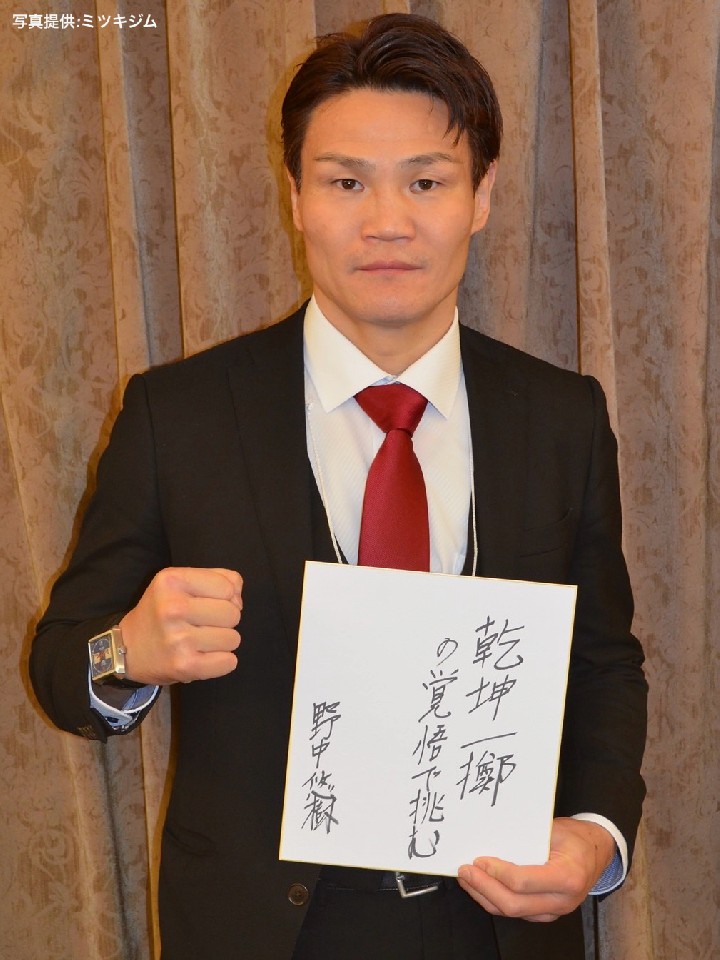 写真提供:ミツキジム
乾坤一擲
の覚悟で挑む
野中悠樹